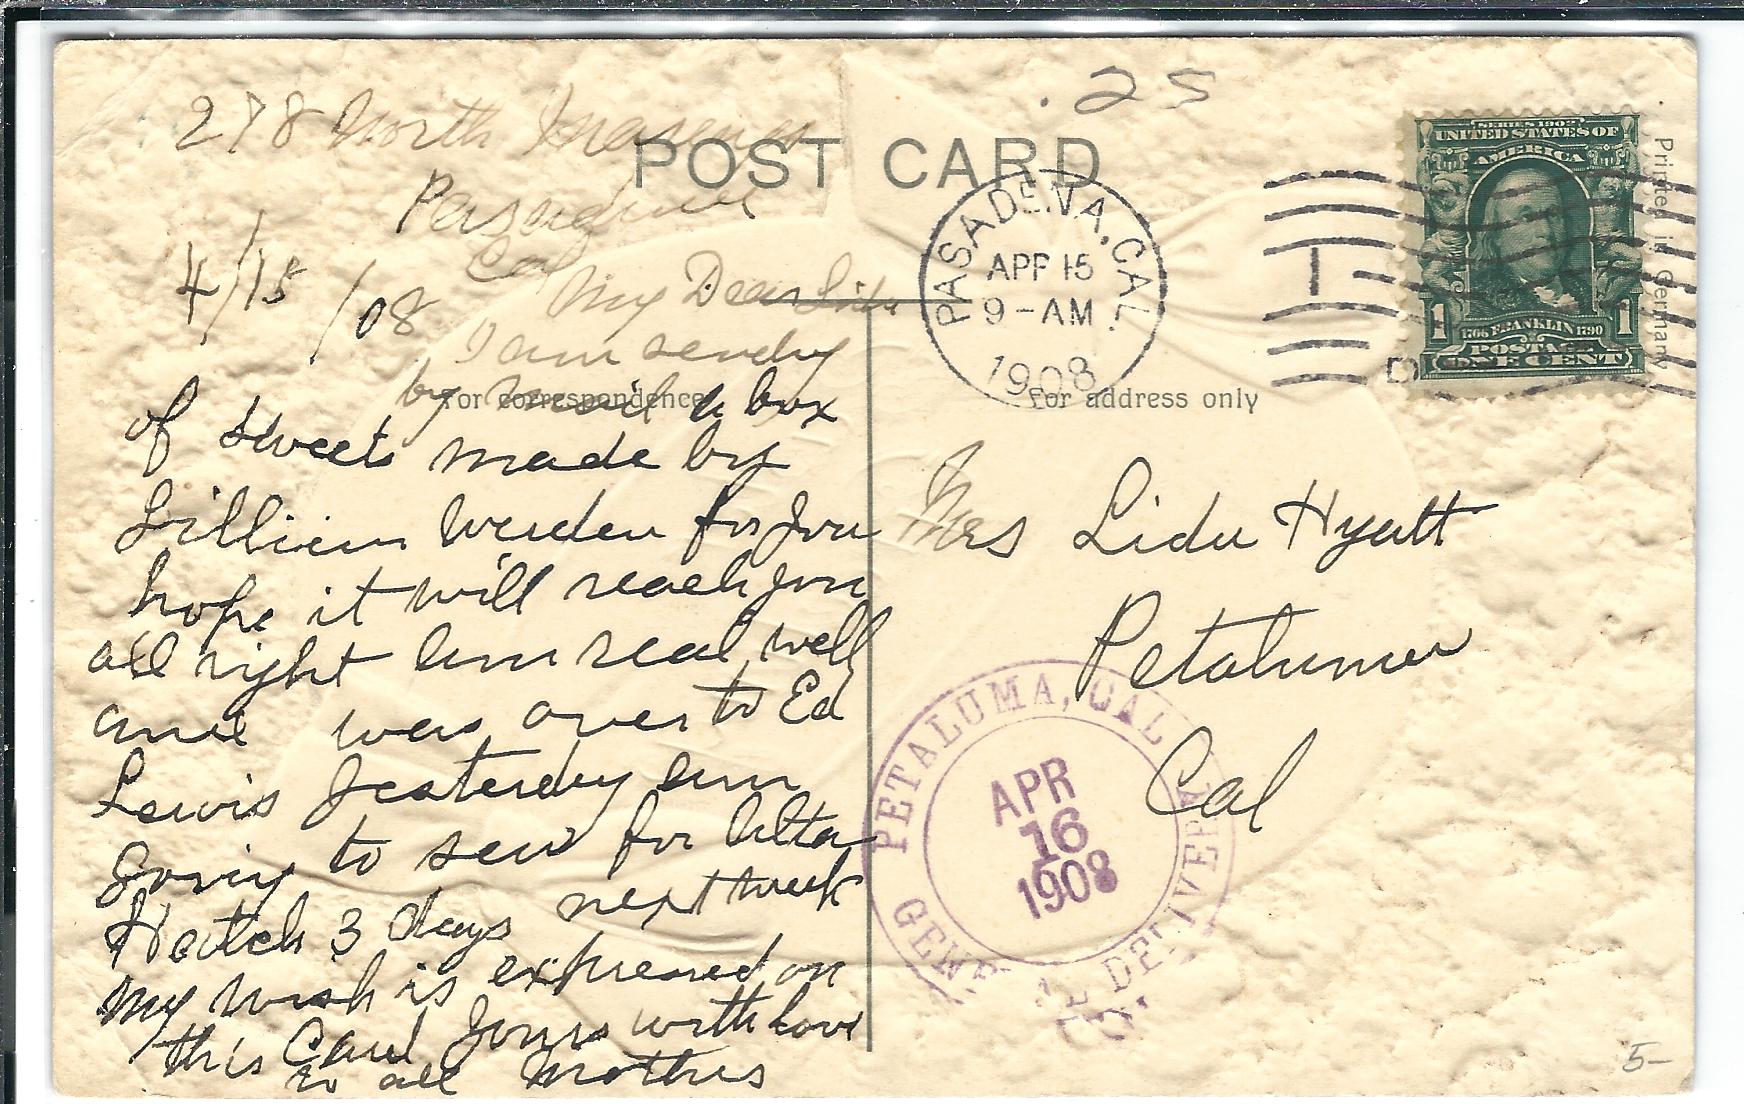 .25
278 North
POST CARD
Pasadena
Cal
4/15/08
My Dear Lida
I am sending
by mail a box
of sweets made by
Lillian Werden for you
hope it will reach you
all right am real well
and was over to Ed
Lewis yesterday am
going to sew for Alta
Hatch 3 days next week
My wish is expressed on
this Card Yours with love
to all Mother
For correspondence
For address only
PASADENA, CAL.
APR 15
9-AM
1908
SERIES 1902
UNITED STATES OF
AMERICA
1 1
1706 FRANKLIN 1790
POSTAGE
ONE CENT
Printed in Germany
Mrs Lida Hyatt
Petaluma
Cal
PETALUMA, CAL
APR
16
1908
GENERAL DELIVERY
5-